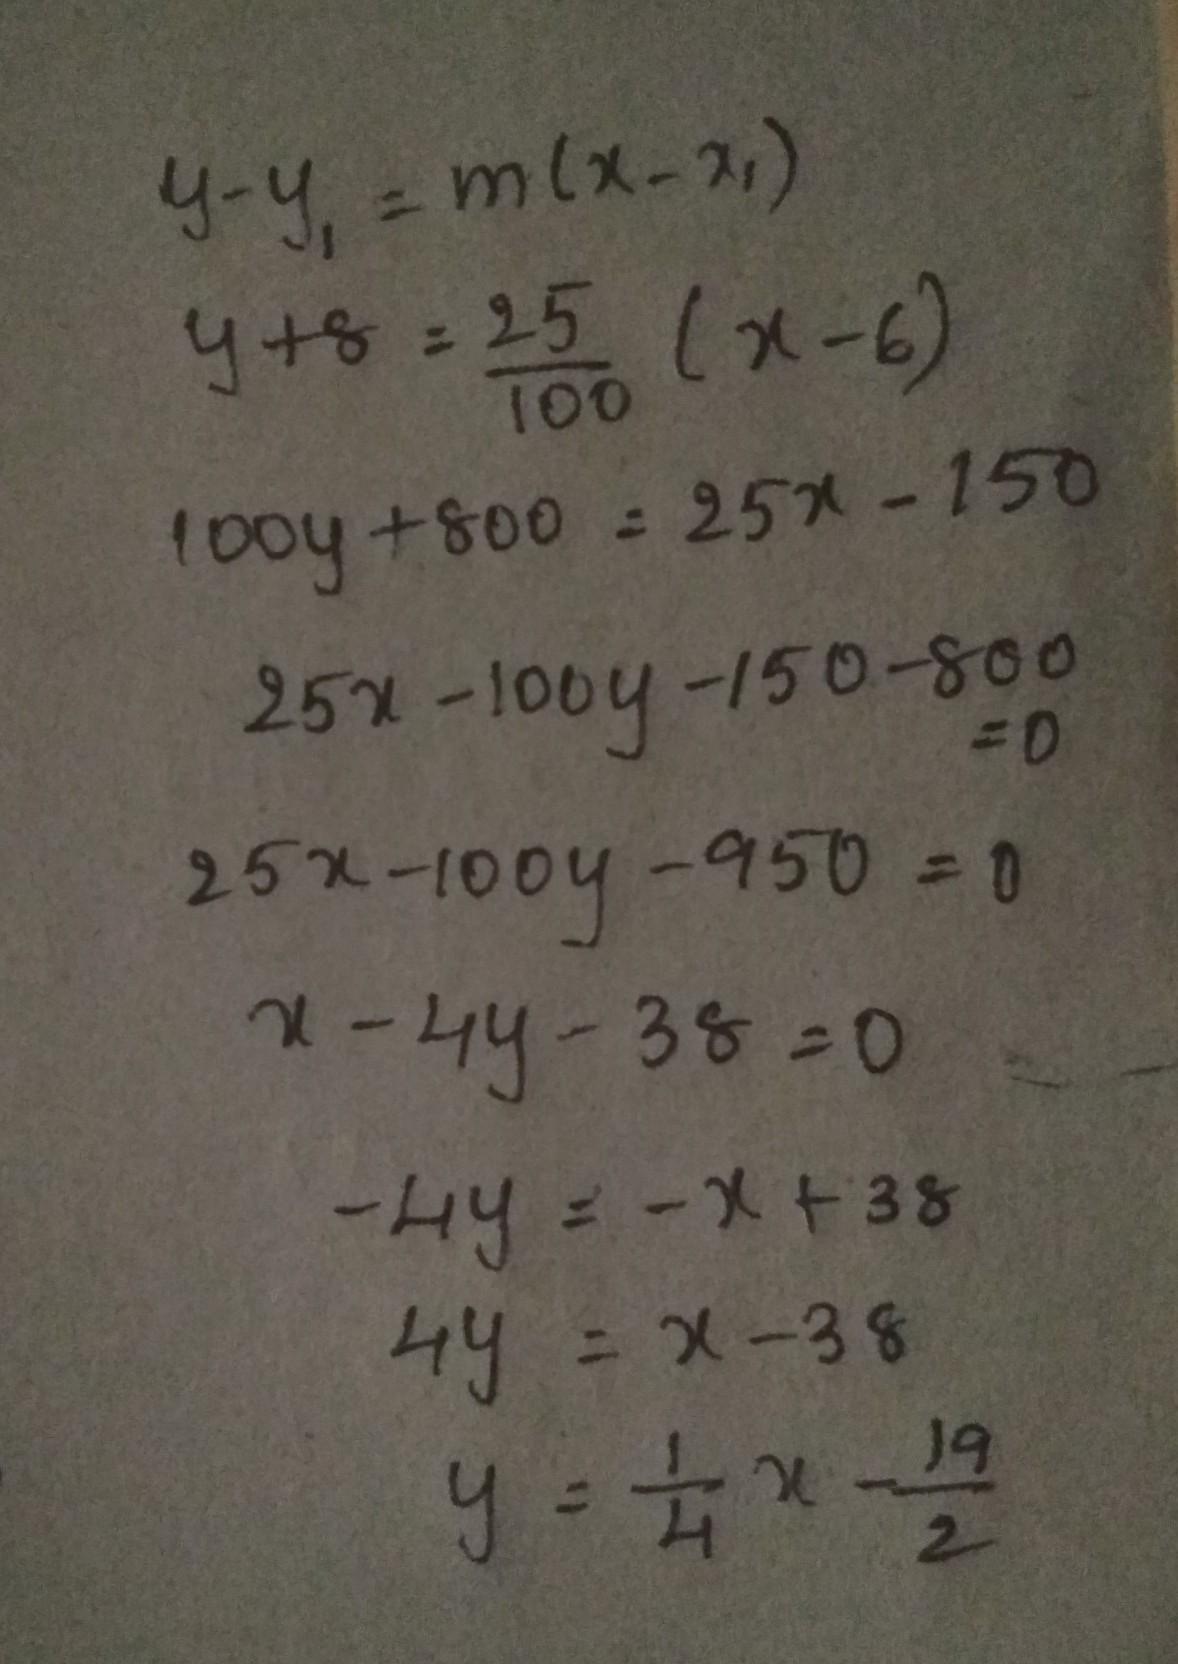 y-y₁ = m(x-x₁)
y+8 = 25/100 (x-6)
100y+800 = 25x-150
25x-100y-150-800
=0
25x-100y-950 = 0
x-4y-38=0
-4y = -x+38
4y = x-38
y = 1/4 x - 19/2